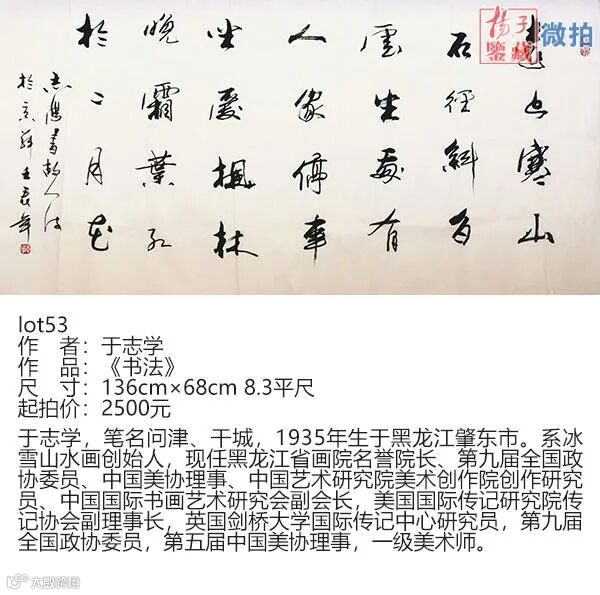 揚子
鑒藏
微拍
遠上寒山
石徑斜白
雲生處有
人家停車
坐愛楓林
晚霜葉紅
於二月花
lot53
作 者：于志学
作 品：《书法》
尺 寸：136cm×68cm 8.3平尺
起拍价：2500元
于志学，笔名问津、干城，1935年生于黑龙江肇东市。系冰
雪山水画创始人，现任黑龙江省画院名誉院长、第九届全国政
协委员、中国美协理事、中国艺术研究院美术创作院创作研究
员、中国国际书画艺术研究会副会长，美国国际传记研究院传
记协会副理事长，英国剑桥大学国际传记中心研究员，第九届
全国政协委员，第五届中国美协理事，一级美术师。
大众跨境